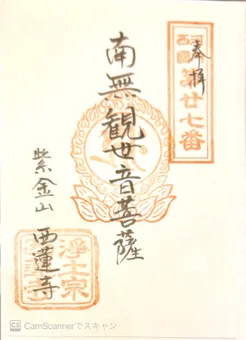 奉拝
西國
第廿七番
南無観世音菩薩
紫金山 西蓮寺
浄土宗
CamScannerでスキャン